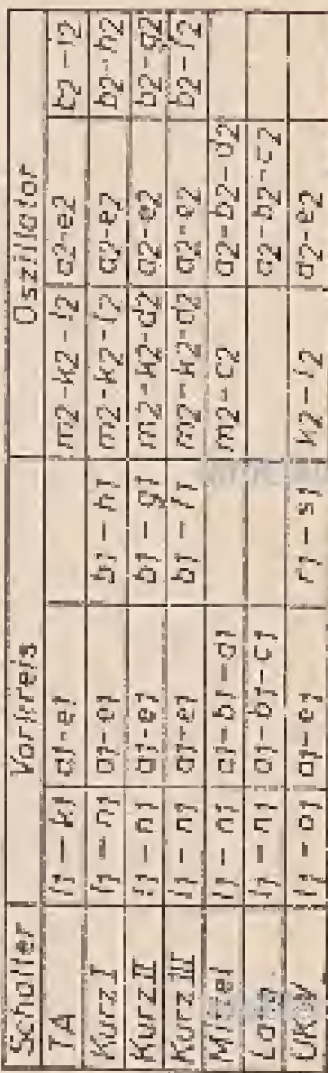 Schalter Vorkreis Oszillator
TA l1-k1 a1-e1 m2-k2-l2 a2-e2 b2-i2
Kurz I l1-n1 a1-e1 b1-h1 m2-k2-l2 a2-e2 b2-h2
Kurz II l1-n1 a1-e1 b1-g1 m2-k2-d2 a2-e2 b2-g2
Kurz III l1-n1 a1-e1 b1-f1 m2-k2-d2 a2-e2 b2-f2
Mittel l1-n1 a1-b1-d1 m2-c2 a2-b2-d2
Lang l1-n1 a1-b1-c1 a2-b2-c2
UKW l1-o1 a1-e1 r1-s1 k2-l2 a2-e2